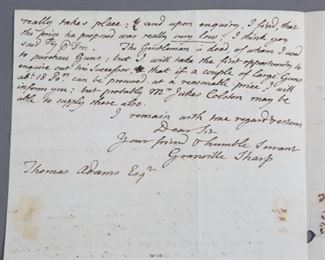 really takes place: & and upon enquiry, I find that
the price he proposed was really very low: I think you
said # p Dm. The Gentleman is dead of whom I was
to purchase Guns; but I will take the first opportunity to
enquire out his Successor & that if a couple of large Guns
abt. 18 Pdrs. can be procured at a reasonable price, I will
inform you: but probably Mr. Jukes Colson may be
able to supply there also.
I remain with true regard & esteem
Dear Sir
Your friend & humble Servant
Granville Sharp
Thomas Adams Esqr.